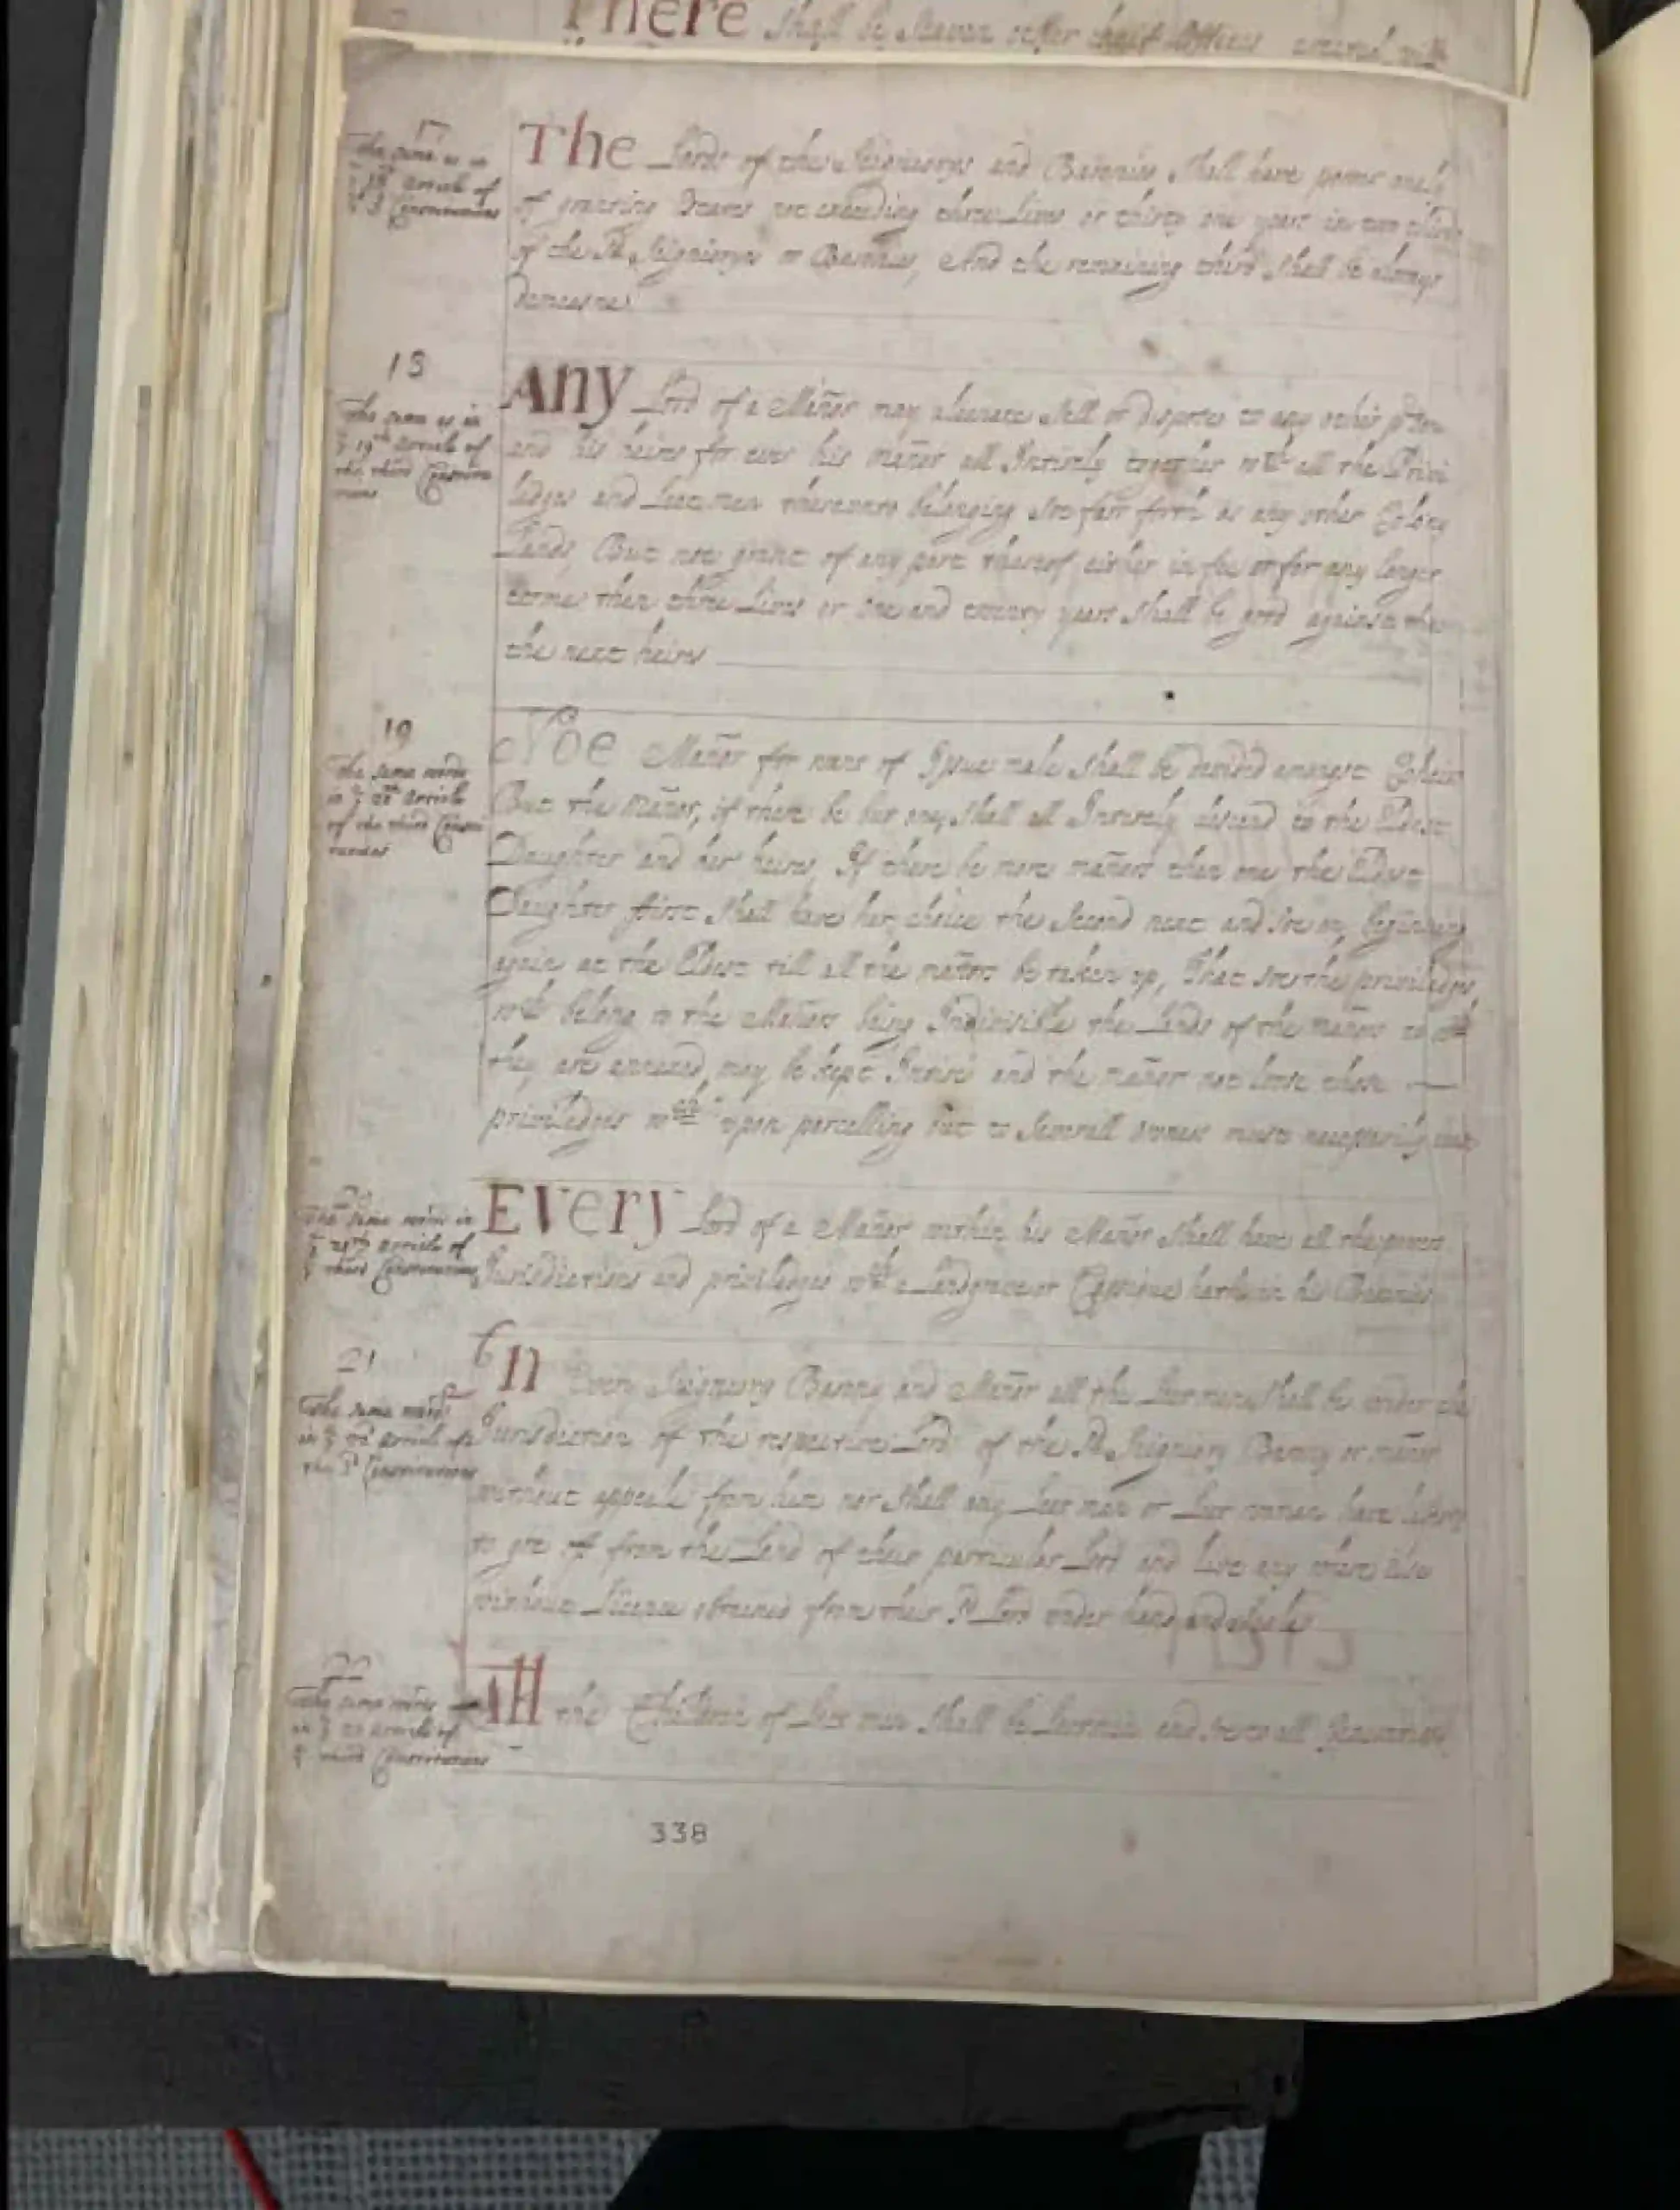 There shall be Seaven other cheife Officers erected with
17
The same as in
ye 18th Article of
ye 3d Constitutions
The Lords of the Seignioryes and Baronies shall have power onely
of granting Estates not exceeding three Lives or thirty one years in two thirds
of the sd. Seignioryes or Baronies, And the remaining third shall be always
demeasne
18
The same as in
ye 19th Article of
the third Constitu
tions
Any Lord of a Mañor may alienate sell or dispose to any other
and his heires for ever his mañor all Intirely together wth all the Privi
ledges and Leetmen thereunto belonging soe farr forth as any other Colony
Lands, But noe grant of any part thereof either in fee or for any longer
terme then three Lives or one and twenty years shall be good against
the next heires
19
The same words
in ye Article
of the third Consti
tutions
Noe Mañor for want of Issue male shall be devided amongst Coheirs
But the mañor, if there be but one, shall all Intirely descend to the Eldest
Daughter and her heires, If there be more mañors then one the Eldest
Daughter first shall have her choice the Second next and soe on, beginning
again at the Eldest till all the mañors be taken up, That soe the priviledges
wch belong to the Mañors being Indivisible the Lands of the mañors to wch
they are annexed, may be kept Intire and the mañor not loose those
priviledges wch upon parcelling out to severall owners must necessarily cease
20
The same words in
ye Article of
ye third Constitutions
Every Lord of a Mañor within his Mañor shall have all the powers
Jurisdictions and priviledges wch a Landgrave or Cassique hath in his Baronies
21
The same words
in ye Article of
the 3d Constitutions
In Every Seigniory Barony and Mañor all the Leetmen shall be under the
Jurisdiction of the respective Lord of the sd. Seigniory Barony or mañor
without appeale from him nor shall any Leet man or Leet woman have liberty
to goe off from the Land of their particular Lord and live any where else
without Licence obtained from their sd. Lord under hand and seale
22
The same words
in ye Article of
ye third Constitutions
All the Children of Leet men shall be Leetmen and soe to all Generations
338